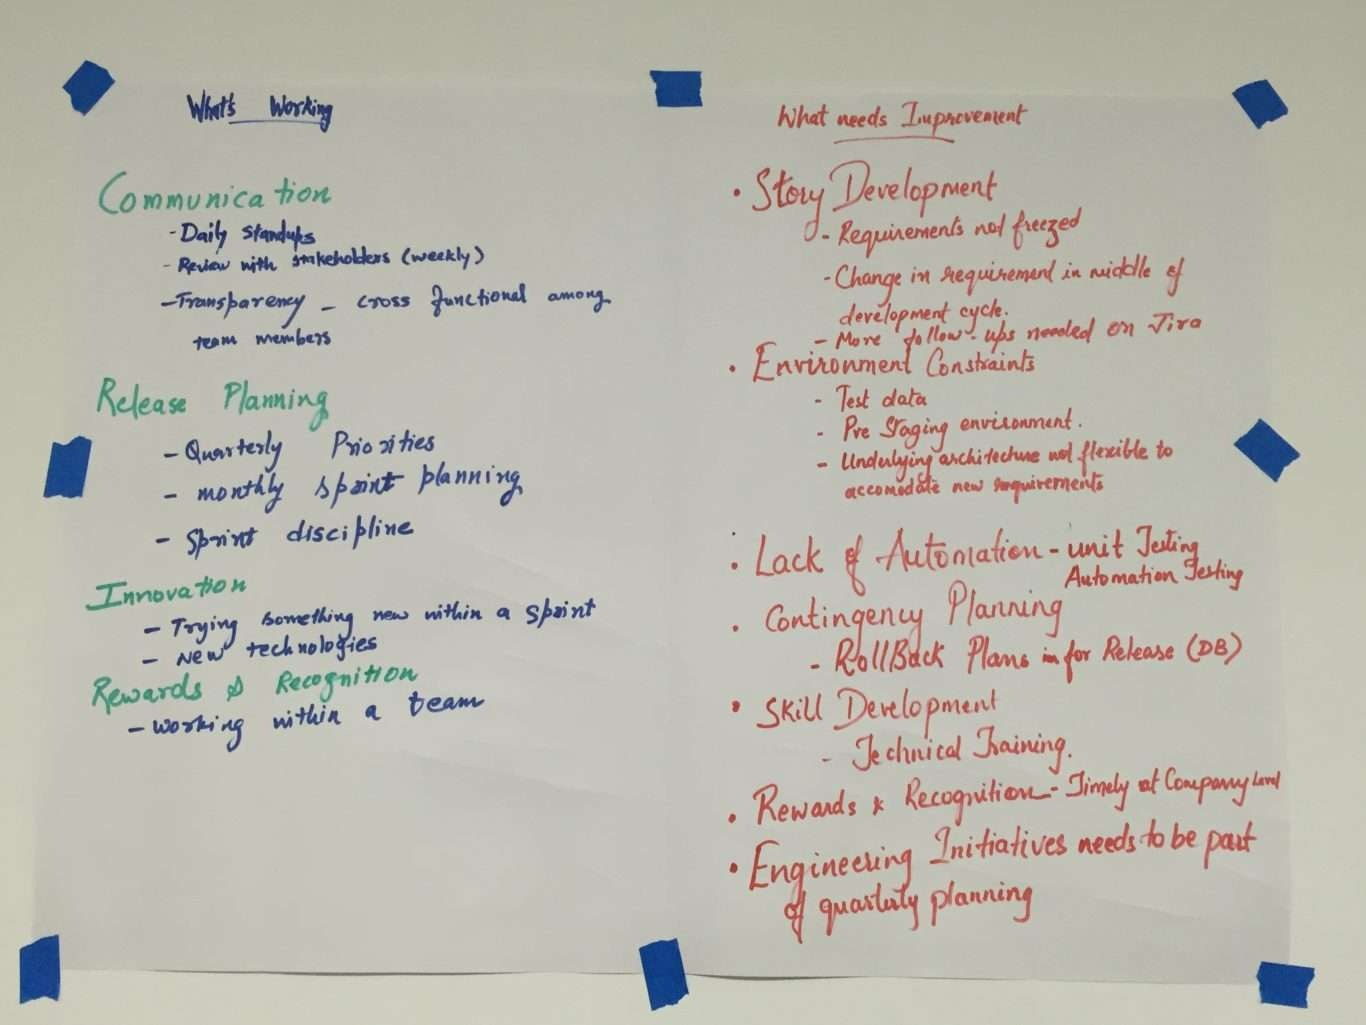 What's Working
Communication
- Daily standups
- Review with stakeholders (weekly)
- Transparency - cross functional among
team members
Release Planning
- Quarterly Priorities
- monthly sprint planning
- Sprint discipline
Innovation
- Trying something new within a sprint
- New technologies
Rewards & Recognition
- working within a team
What needs Improvement
• Story Development
- Requirements not freezed
- Change in requirement in middle of
development cycle.
- More follow-ups needed on Jira
• Environment Constraints
- Test data
- Pre Staging environment.
- Underlying architecture not flexible to
accomodate new requirements
• Lack of Automation - unit Testing
Automation Testing
• Contingency Planning
- RollBack Plans in for Release (DB)
• Skill Development
- Technical Training.
• Rewards & Recognition - Timely at Company Level
• Engineering Initiatives needs to be part
of quarterly planning